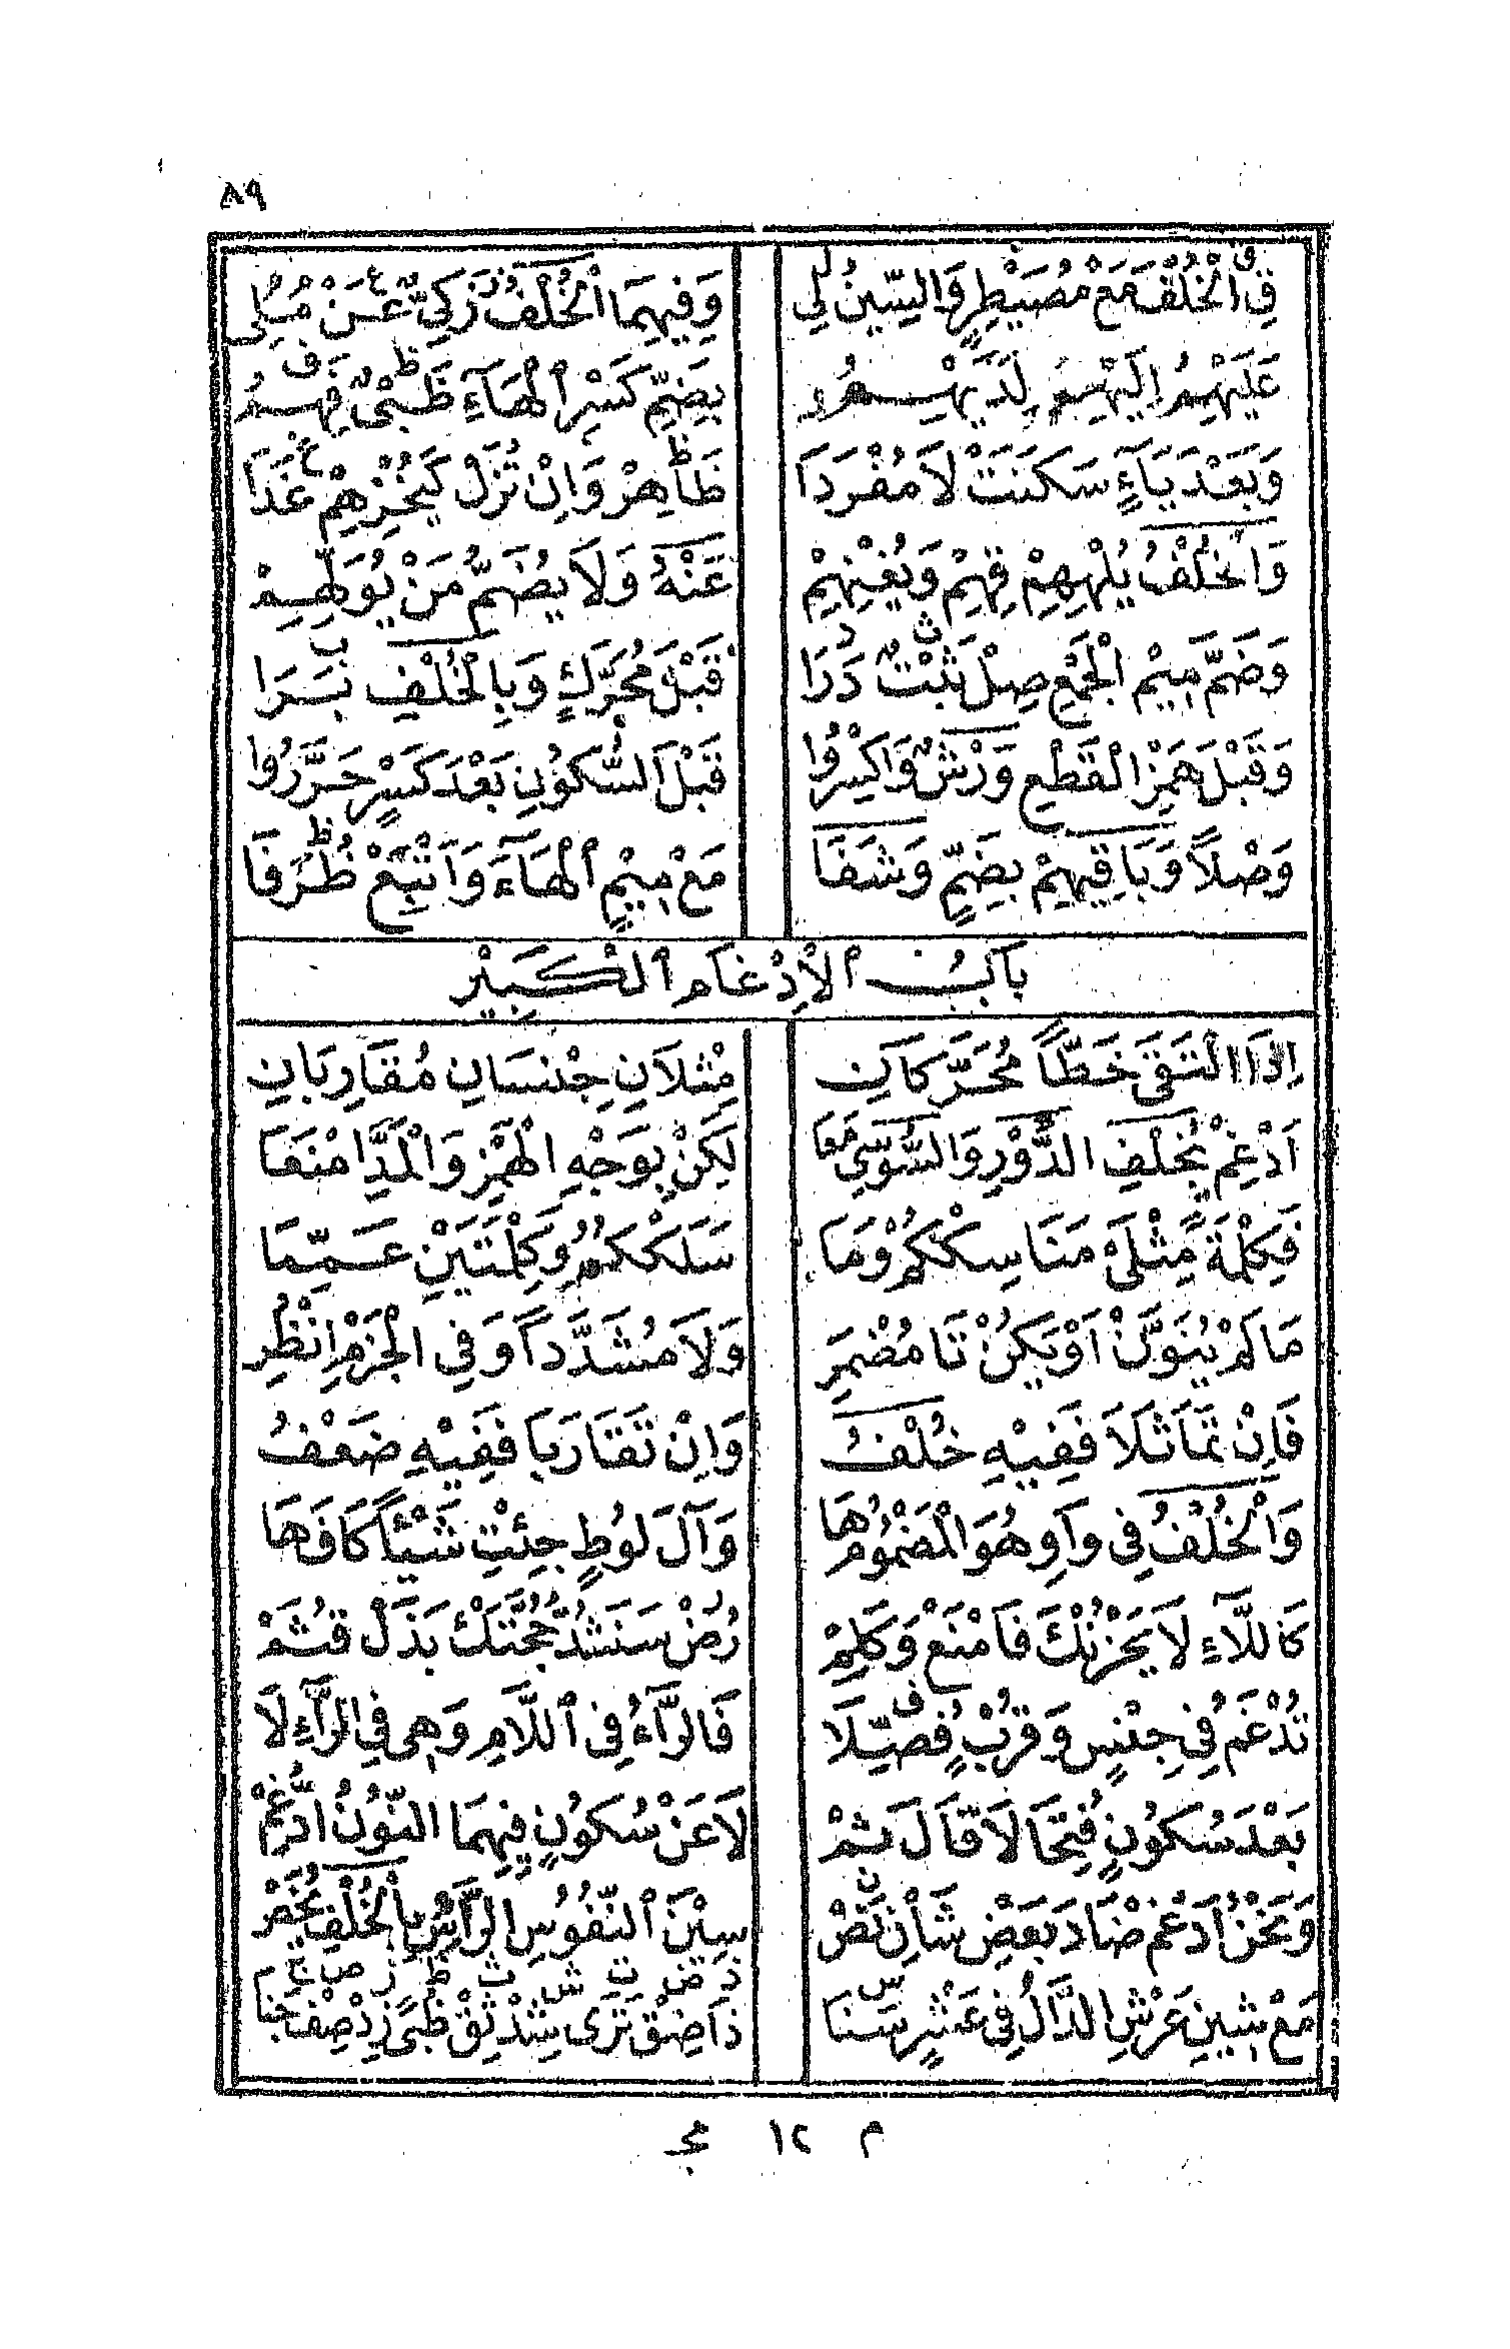 ٨٩
قِ الْخُلْفُ مَعْ مُصَيْطِرٍ وَالسِّينُ لِي وَفِيهِمَا الْخُلْفُ زَكِيٌّ عَنْ مَلِي
عَلَيْهِمُ إِلَيْهِمُ لَدَيْهِمُو بِضَمِّ كَسْرِ الْهَاءِ ظَبْيٌ فَهِمُ
وَبَعْدَ يَاءٍ سَكَنَتْ لَا مُفْرَدَا ظَاهِرْ وَإِنْ تُزَلْ كَيُخْزِهِمْ غَدَا
وَالْخُلْفُ يُلْهِهِمْ قِهِمْ وَيُغْنِهِمْ عَنْهُ وَلَا يُضَمُّ مَنْ يُوَلِّهِمْ
وَضَمَّ مِيمِ الْجَمْعِ صِلْ ثَبْتٌ دَرَا قَبْلَ مُحَرَّكٍ وَبِالْخُلْفِ بَرَا
وَقَبْلَ هَمْزِ الْقَطْعِ وَرْشٌ وَاكْسِرُوا قَبْلَ السُّكُونِ بَعْدَ كَسْرٍ حَرَّرُوا
وَصْلًا وَبَاقِيهِمْ بِضَمٍّ وَشَفَا مَعْ مِيمٍ الْهَاءَ وَأَتْبِعْ ظُرَفَا
بَابُ الْإِدْغَامِ الْكَبِيْرِ
إِذَا الْتَقَى خَطًّا مُحَرَّكَانِ مِثْلَانِ جِنْسَانِ مُقَارِبَانِ
اَدْغِمْ بِخُلْفِ الدُّوْرِ وَالسُّوْسِي مَعَا لَكِنْ بِوَجْهِ الْهَمْزِ وَالْمَدِّ امْنَعَا
فَكِلْمَةً مِثْلَيْ مَنَاسِكْكُمْ وَمَا سَلَكْكُمُ وَكِلْمَتَيْنِ عَمِّمَا
مَا لَمْ يُنَوَّنْ أَوْ يَكُنْ تَا مُضْمَرِ وَلَا مُشَدَّدًا وَفِي الْجَزْمِ انْظُرِ
فَإِنْ تَمَاثَلَا فَفِيْهِ خُلْفُ وَإِنْ تَقَارَبَا فَفِيْهِ ضَعْفُ
وَالْخُلْفُ فِي وَاوِ هُوَ الْمَضْمُومِ هَا وَآلَ لُوطٍ جِئْتِ شَيْئًا كَافَ هَا
كَاللَّاءِ لَا يَحْزُنْكَ فَامْنَعْ وَكَلِمْ رُضْ سَنَشُدُّ حُجَّتَكْ بَذْلَ قُثَمْ
تُدْغَمُ فِي جِنْسٍ وَقُرْبٍ فُصِّلَا فَالرَّاءُ فِي اللَّامِ وَهِي فِي الرَّاءِ لَا
بَعْدَ سُكُونٍ فُتِحَا لَا قَالَ ثُمْ لَا عَنْ سُكُونٍ فِيهِمَا النُّونُ ادُّغِمْ
وَنَحْنُ أَدْغِمْ ضَادَ بَعْضِ شَأْنِ نَصْ سِيْنَ النُّفُوسِ الرَّاسُ بِالْخُلْفِ يُخَصْ
مَعْ شِينِ عَرْشِ الدَّالُ فِي عَشْرٍ سَنَا ذَا ضِقْ تَرَى شِدْ ثِقْ ظُبًى زِدْ صِفْ جَنَا
م ١٢